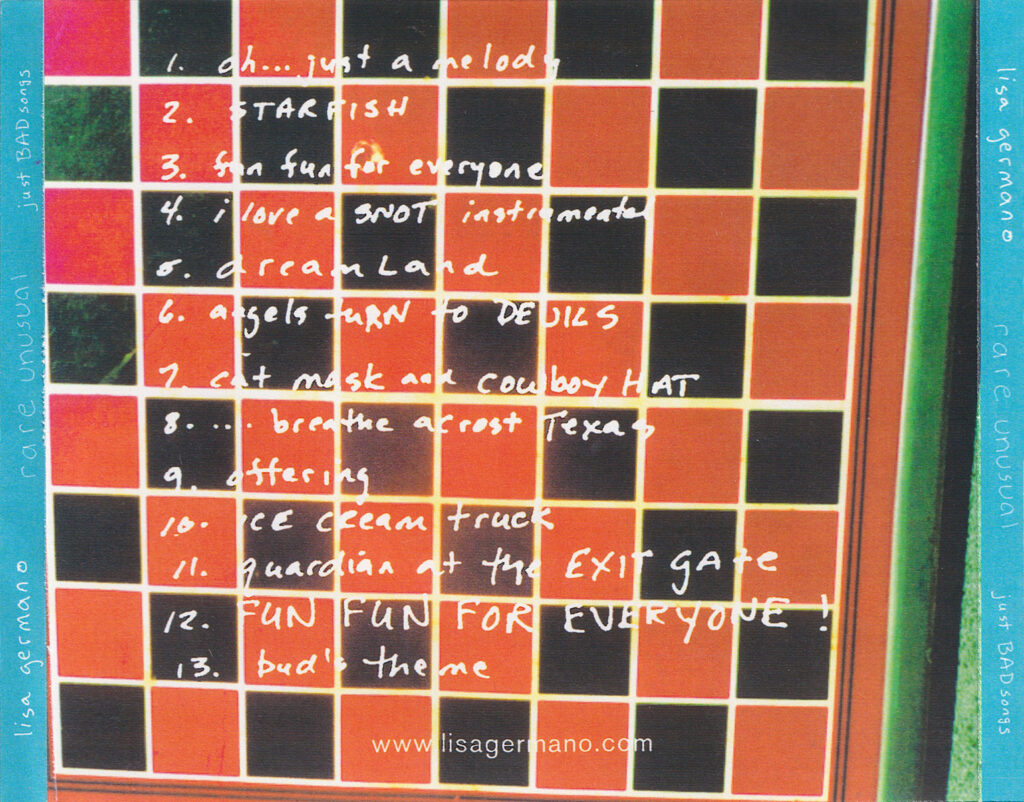 1. oh... just a melody
2. STARFISH
3. fun fun for everyone
4. i love a SNOT instrumental
5. dreamLand
6. angels tURN to DEVILS
7. cat mask and cowboy HAT
8. .... breathe acrost Texas
9. offering
10. ICE cream truck
11. guardian at the EXIT gAte
12. FUN FUN FOR EVERYONE !
13. bud's theme
www.lisagermano.com
lisa germano rare unusual just BAD songs
lisa germano rare unusual just BAD songs